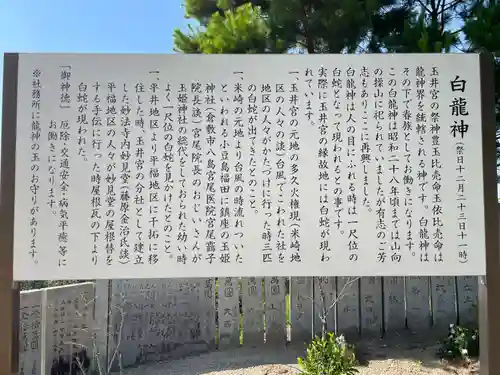 白龍神(祭日十二月二十三日十一時)
玉井宮の祭神豊玉比売命玉依比売命は
龍神界を統轄される神です。白龍神は
その下で眷族としてお働きになります。
この白龍神は昭和二十八年頃までは山向
の操山に祀られていましたが有志のご芳
志もありここに再興しました。
白龍神は人の目にふれられる時は一尺位の
白蛇となって現われるとの事です。
実際に玉井宮の縁故地には白蛇が現わ
れています。
一、玉井宮の元地の多火火権現(米崎地
区の人々の談)台風でこわれた社を
地区の人々がかたづけに行った時三匹
の白蛇が出てきたとのこと。
一、米崎の元地より台風の時流れついた
といわれる小豆島福田に鎮座の玉姫
神社(倉敷の宮尾医院宮尾靄子
院長談)宮尾院長のおじいさんが
玉姫神社の総代をしておられた幼い時
に一尺位の白蛇を見かけたとのこと。
一、平井地区より平福地区に千拓で移
住した時、玉井宮の分社として建立
した妙法寺内妙見堂(藤原金治氏談)
平福地区の人々が妙見堂の屋根替を
する手伝に行った時屋根瓦の下より
白蛇が現われた。
「御神徳」 厄除・交通安全・病気平癒等に
お働きになります。
※社務所に龍神の玉のお守りがあります。